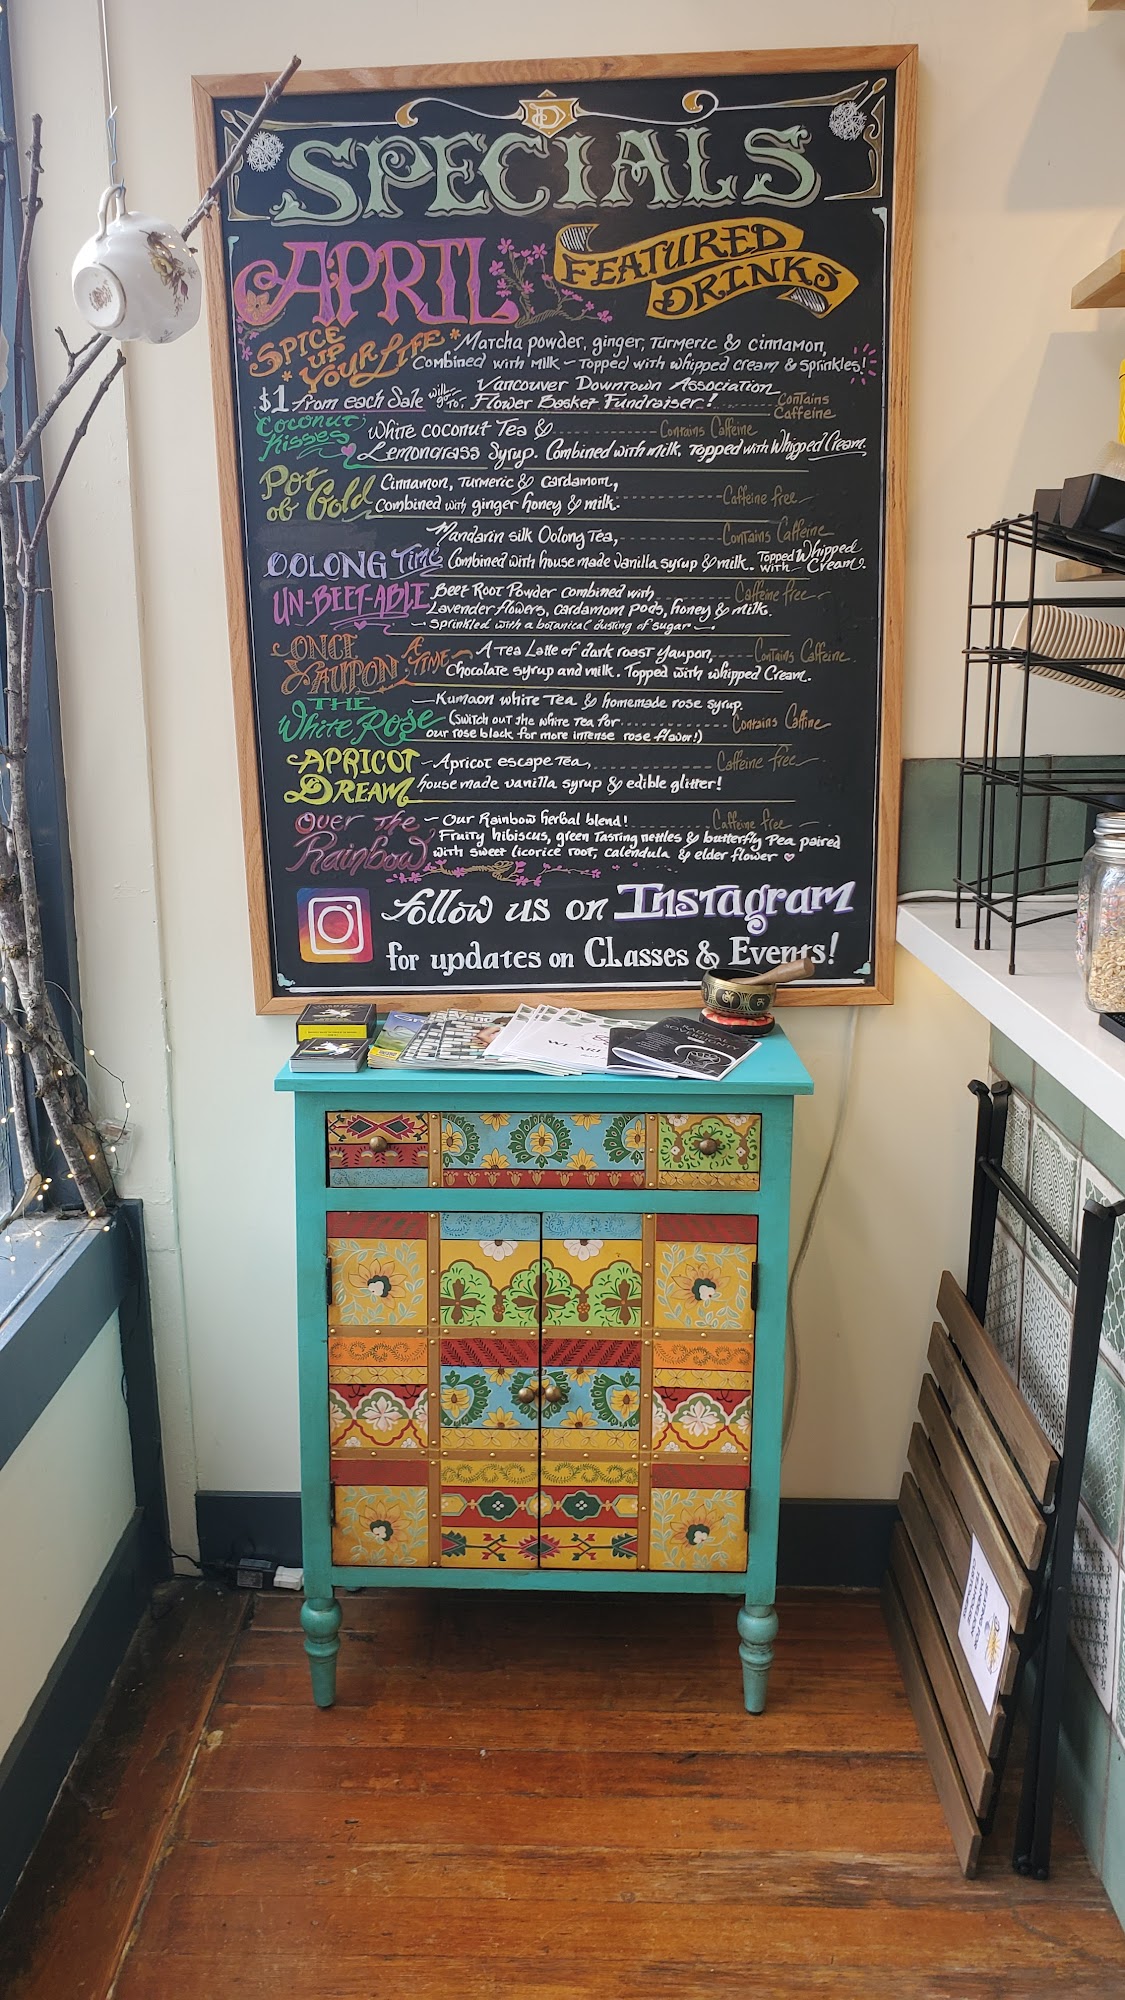 D
SPECIALS
APRIL
FEATURED
DRINKS
SPICE UP YOUR LIFE
*Matcha powder, ginger, turmeric & cinnamon,
Combined with milk - Topped with whipped cream & sprinkles!
$1 from each Sale will go to: Vancouver Downtown Association
Flower Basket Fundraiser! Contains Caffeine
Coconut Kisses
White coconut Tea & Contains Caffeine
Lemongrass Syrup. Combined with milk, Topped with Whipped Cream.
Pot of Gold
Cinnamon, Turmeric & Cardamom,
Combined with ginger honey & milk. Caffeine free
OOLONG Time
Mandarin silk Oolong Tea, Contains Caffeine
Combined with house made vanilla syrup & milk. Topped with Whipped Cream.
UN-BEET-ABLE
Beet Root Powder combined with Caffeine free
Lavender flowers, cardamom pods, honey & milk.
- Sprinkled with a botanical dusting of sugar -
ONCE YAUPON A TIME
A Tea Latte of dark roast yaupon, Contains Caffeine
Chocolate syrup and milk. Topped with whipped Cream.
THE White Rose
- Kumaon white Tea & homemade rose syrup.
(Switch out the white Tea for Contains Caffine
our rose black for more intense rose flavor!)
APRICOT DREAM
- Apricot escape Tea, Caffeine free
house made vanilla syrup & edible glitter!
Over The Rainbow
- Our Rainbow herbal blend! Caffeine free
Fruity hibiscus, green Tasting nettles & butterfly Pea paired
with sweet licorice root, calendula & elder flower
follow us on Instagram
for updates on Classes & Events!
RADICAL
SOVEREIGNTY
WE ARE